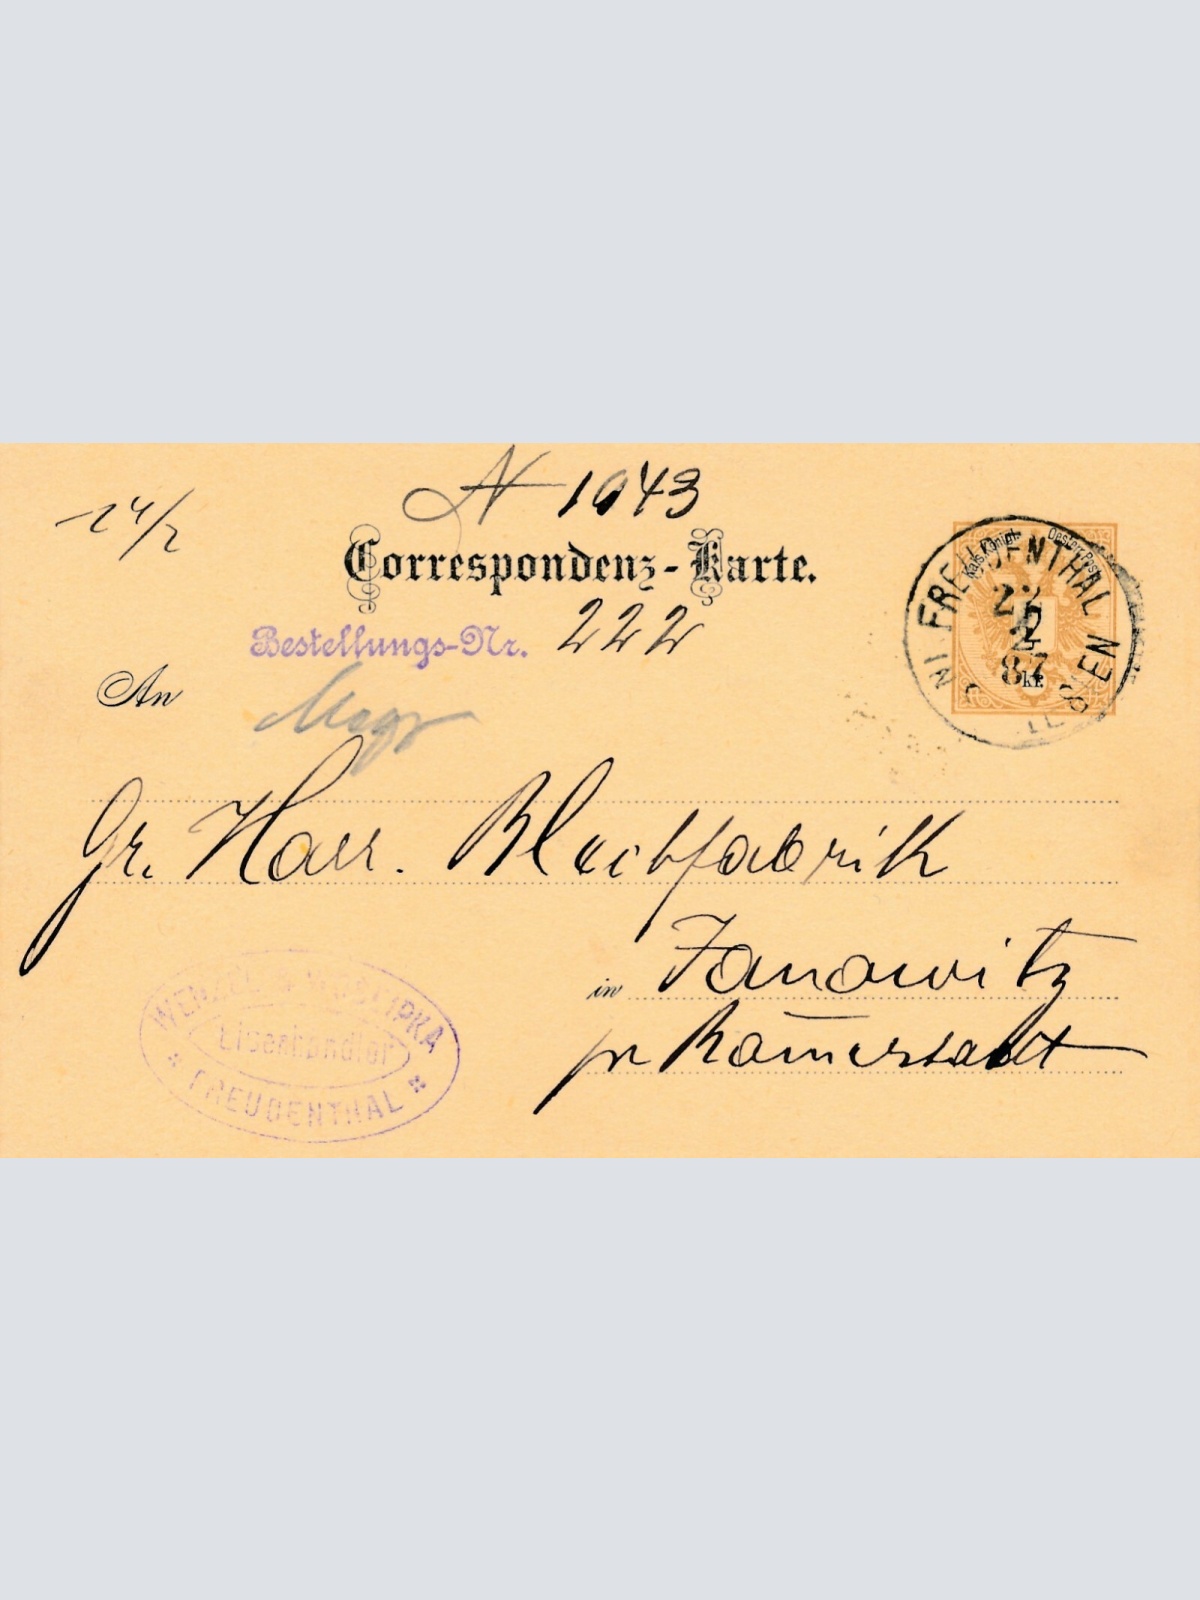 24/2
N 1043
Correspondenz-Karte.
Kais. Königl. Oesterr. Post
2 kr.
FREUDENTHAL IN SCHLESIEN
22
2
87
Bestellungs-Nr. 222
An
Gr. Harr. Blechfabrik
in Janowitz
pr Römerstadt
WENZEL
Eisenhandler
FREUDENTHAL